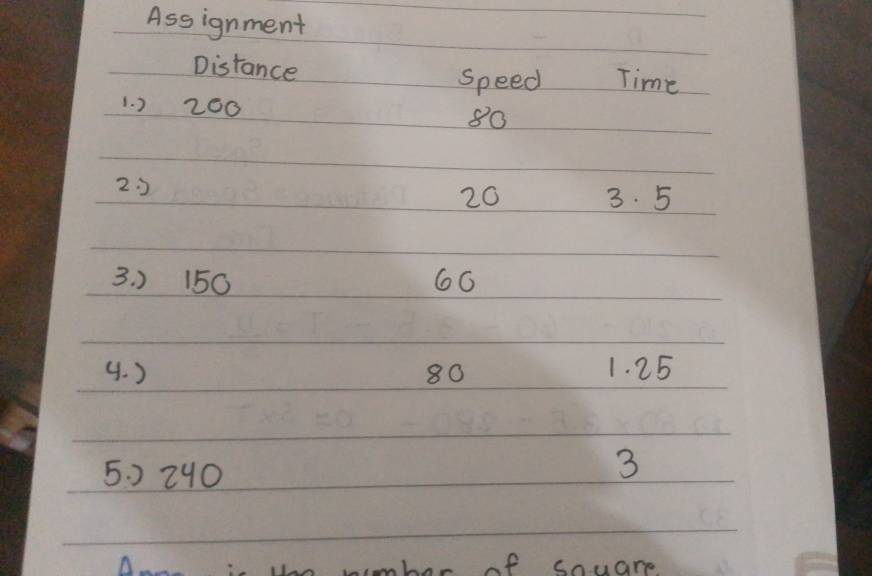 Assignment
Distance Speed Time
1.) 200 80
2.) 20 3.5
3.) 150 60
4.) 80 1.25
5.) 240 3
is the number of square